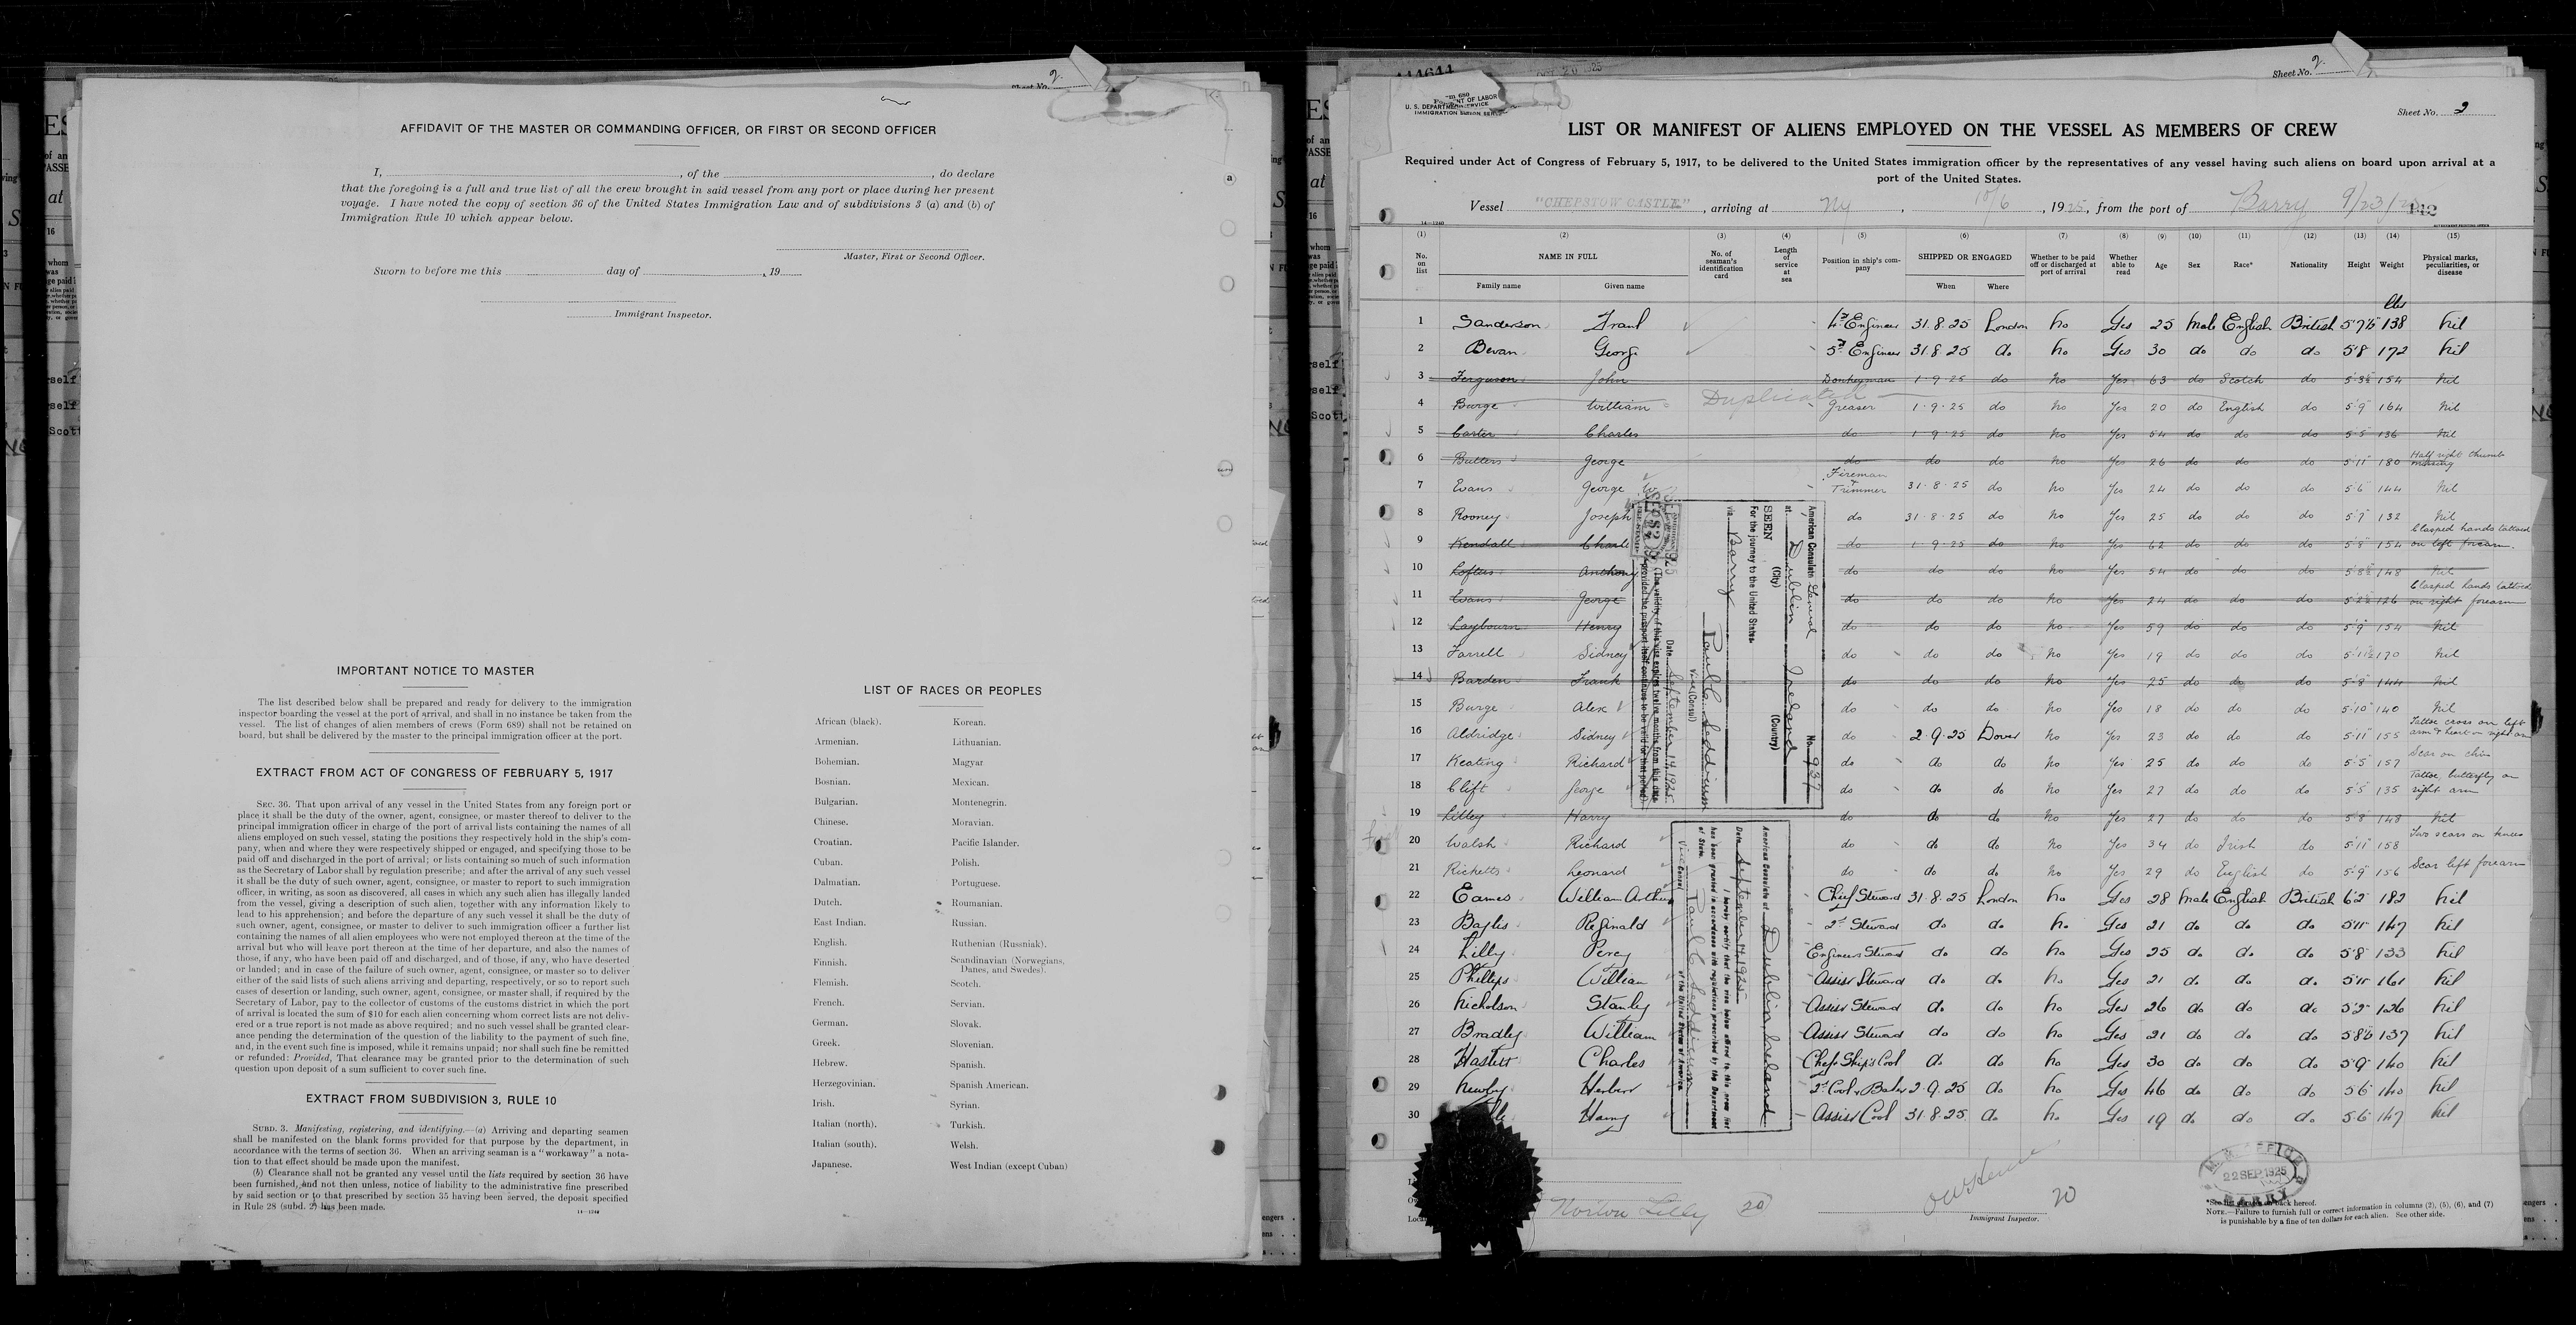 AFFIDAVIT OF THE MASTER OR COMMANDING OFFICER, OR FIRST OR SECOND OFFICER
I, , of the , do declare
that the foregoing is a full and true list of all the crew brought in said vessel from any port or place during her present
voyage. I have noted the copy of section 36 of the United States Immigration Law and of subdivisions 3 (a) and (b) of
Immigration Rule 10 which appear below.
Master, First or Second Officer.
Sworn to before me this day of , 19
Immigrant Inspector.
IMPORTANT NOTICE TO MASTER
The list described below shall be prepared and ready for delivery to the immigration
inspector boarding the vessel at the port of arrival, and shall in no instance be taken from the
vessel. The list of changes of alien members of crews (Form 689) shall not be retained on
board, but shall be delivered by the master to the principal immigration officer at the port.
EXTRACT FROM ACT OF CONGRESS OF FEBRUARY 5, 1917
SEC. 36. That upon arrival of any vessel in the United States from any foreign port or
place it shall be the duty of the owner, agent, consignee, or master thereof to deliver to the
principal immigration officer in charge of the port of arrival lists containing the names of all
aliens employed on such vessel, stating the positions they respectively hold in the ship's com-
pany, when and where they were respectively shipped or engaged, and specifying those to be
paid off and discharged in the port of arrival; or lists containing so much of such information
as the Secretary of Labor shall by regulation prescribe; and after the arrival of any such vessel
it shall be the duty of such owner, agent, consignee, or master to report to such immigration
officer, in writing, as soon as discovered, all cases in which any such alien has illegally landed
from the vessel, giving a description of such alien, together with any information likely to
lead to his apprehension; and before the departure of any such vessel it shall be the duty of
such owner, agent, consignee, or master to deliver to such immigration officer a further list
containing the names of all alien employees who were not employed thereon at the time of the
arrival but who will leave port thereon at the time of her departure, and also the names of
those, if any, who have been paid off and discharged, and of those, if any, who have deserted
or landed; and in case of the failure of such owner, agent, consignee, or master so to deliver
either of the said lists of such aliens arriving and departing, respectively, or so to report such
cases of desertion or landing, such owner, agent, consignee, or master shall, if required by the
Secretary of Labor, pay to the collector of customs of the customs district in which the port
of arrival is located the sum of $10 for each alien concerning whom correct lists are not deliv-
ered or a true report is not made as above required; and no such vessel shall be granted clear-
ance pending the determination of the question of the liability to the payment of such fine,
and, in the event such fine is imposed, while it remains unpaid; nor shall such fine be remitted
or refunded: Provided, That clearance may be granted prior to the determination of such
question upon deposit of a sum sufficient to cover such fine.
EXTRACT FROM SUBDIVISION 3, RULE 10
SUBD. 3. Manifesting, registering, and identifying.—(a) Arriving and departing seamen
shall be manifested on the blank forms provided for that purpose by the department, in
accordance with the terms of section 36. When an arriving seaman is a "workaway" a nota-
tion to that effect should be made upon the manifest.
(b) Clearance shall not be granted any vessel until the lists required by section 36 have
been furnished, and not then unless, notice of liability to the administrative fine prescribed
by said section or to that prescribed by section 35 having been served, the deposit specified
in Rule 28 (subd. 2) has been made.
LIST OF RACES OR PEOPLES
African (black). Korean.
Armenian. Lithuanian.
Bohemian. Magyar
Bosnian. Mexican.
Bulgarian. Montenegrin.
Chinese. Moravian.
Croatian. Pacific Islander.
Cuban. Polish.
Dalmatian. Portuguese.
Dutch. Roumanian.
East Indian. Russian.
English. Ruthenian (Russniak).
Finnish. Scandinavian (Norwegians,
Danes, and Swedes).
Flemish. Scotch.
French. Servian.
German. Slovak.
Greek. Slovenian.
Hebrew. Spanish.
Herzegovinian. Spanish American.
Irish. Syrian.
Italian (north). Turkish.
Italian (south). Welsh.
Japanese. West Indian (except Cuban)
Sheet No. 2
Sheet No. 2
LIST OR MANIFEST OF ALIENS EMPLOYED ON THE VESSEL AS MEMBERS OF CREW
Required under Act of Congress of February 5, 1917, to be delivered to the United States immigration officer by the representatives of any vessel having such aliens on board upon arrival at a
port of the United States.
Vessel "CHEPSTOW CASTLE", arriving at Ny, 10/6, 1925, from the port of Barry 9/23/25
(1) (2) (3) (4) (5) (6) (7) (8) (9) (10) (11) (12) (13) (14) (15)
No. on list NAME IN FULL Family name Given name No. of seaman's identification card Length of service at sea Position in ship's company SHIPPED OR ENGAGED When Where Whether to be paid off or discharged at port of arrival Whether able to read Age Sex Race* Nationality Height Weight Physical marks, peculiarities, or disease
lbs
1 Sanderson Frank 4th Engineer 31.8.25 London No Yes 25 Male English British 5'7½ 138 Nil
2 Bevan George 5th Engineer 31.8.25 do No Yes 30 do do do 5'8 172 Nil
3 Ferguson John Donkeyman 1.9.25 do No Yes 63 do Scotch do 5'3½ 154 Nil
Duplicated
4 Burge William Greaser 1.9.25 do No Yes 20 do English do 5'9 164 Nil
5 Carter Charles do 1.9.25 do No Yes 54 do do do 5'5 136 Nil
6 Butters George do do do No Yes 26 do do do 5'11 180 Half right thumb missing
7 Evans George W Fireman & Trimmer 31.8.25 do No Yes 24 do do do 5'6 144 Nil
8 Rooney Joseph do 31.8.25 do No Yes 25 do do do 5'7 132 Nil
9 Kendall Charles do 1.9.25 do No Yes 62 do do do 5'8 154 Clasped hands tattooed on left forearm.
10 Loftus Anthony do do do No Yes 54 do do do 5'8½ 148 Nil
11 Evans George do do do No Yes 24 do do do 5'2½ 126 Clasped hands tattoed on right forearm
12 Laybourn Henry do do do No Yes 59 do do do 5'9 154 Nil
13 Farrell Sidney do do do No Yes 19 do do do 5'11½ 170 Nil
14 Barden Frank do do do No Yes 25 do do do 5'8 144 Nil
15 Burge Alex do do do No Yes 18 do do do 5'10 140 Nil
16 Aldridge Sidney do 2.9.25 Dover No Yes 23 do do do 5'11 155 Tattoo cross on left arm & heart on right arm
17 Keating Richard do do do No Yes 25 do do do 5'5 157 Scar on chin
18 Clift George do do do No Yes 27 do do do 5'5 135 Tattoo, butterfly on right arm
19 Lilley Harry do do do No Yes 27 do do do 5'8 148 Nil
20 Walsh Richard do do do No Yes 34 do Irish do 5'11 158 Two scars on knees
21 Ricketts Leonard do do do No Yes 29 do English do 5'9 156 Scar left forearm
22 Eames William Arthur Chief Steward 31.8.25 London No Yes 28 Male English British 6'2 182 Nil
23 Bayles Reginald 2d Steward do do No Yes 21 do do do 5'11 147 Nil
24 Lilly Percy Engineers Steward do do No Yes 25 do do do 5'8 133 Nil
25 Phillips William Assist Steward do do No Yes 21 do do do 5'11 161 Nil
26 Nicholson Stanley Assist Steward do do No Yes 26 do do do 5'2 126 Nil
27 Bradley William Assist Steward do do No Yes 21 do do do 5'8½ 137 Nil
28 Haslett Charles Chef Ship's Cook do do No Yes 30 do do do 5'9 140 Nil
29 Newby Herbert 2d Cook & Baker 2.9.25 do No Yes 46 do do do 5'6 140 Nil
30 Harry Assist Cook 31.8.25 do No Yes 19 do do do 5'6 147 Nil
American Consulate General
at Dublin Ireland
(City) (Country)
SEEN No. 937
For the journey to the United States
via Barry
Date September 14, 1925
American Consulate at Dublin, Ireland
Date September 14, 1925
I hereby certify that the visa below affixed to this crew list
has been granted in accordance with regulations prescribed by the Department
of State.
Vice Consul of the United States of America
Norton Lilly 20
20
Immigrant Inspector.
22 SEP 1925
BARRY
NOTE.—Failure to furnish full or correct information in columns (2), (5), (6), and (7)
is punishable by a fine of ten dollars for each alien. See other side.